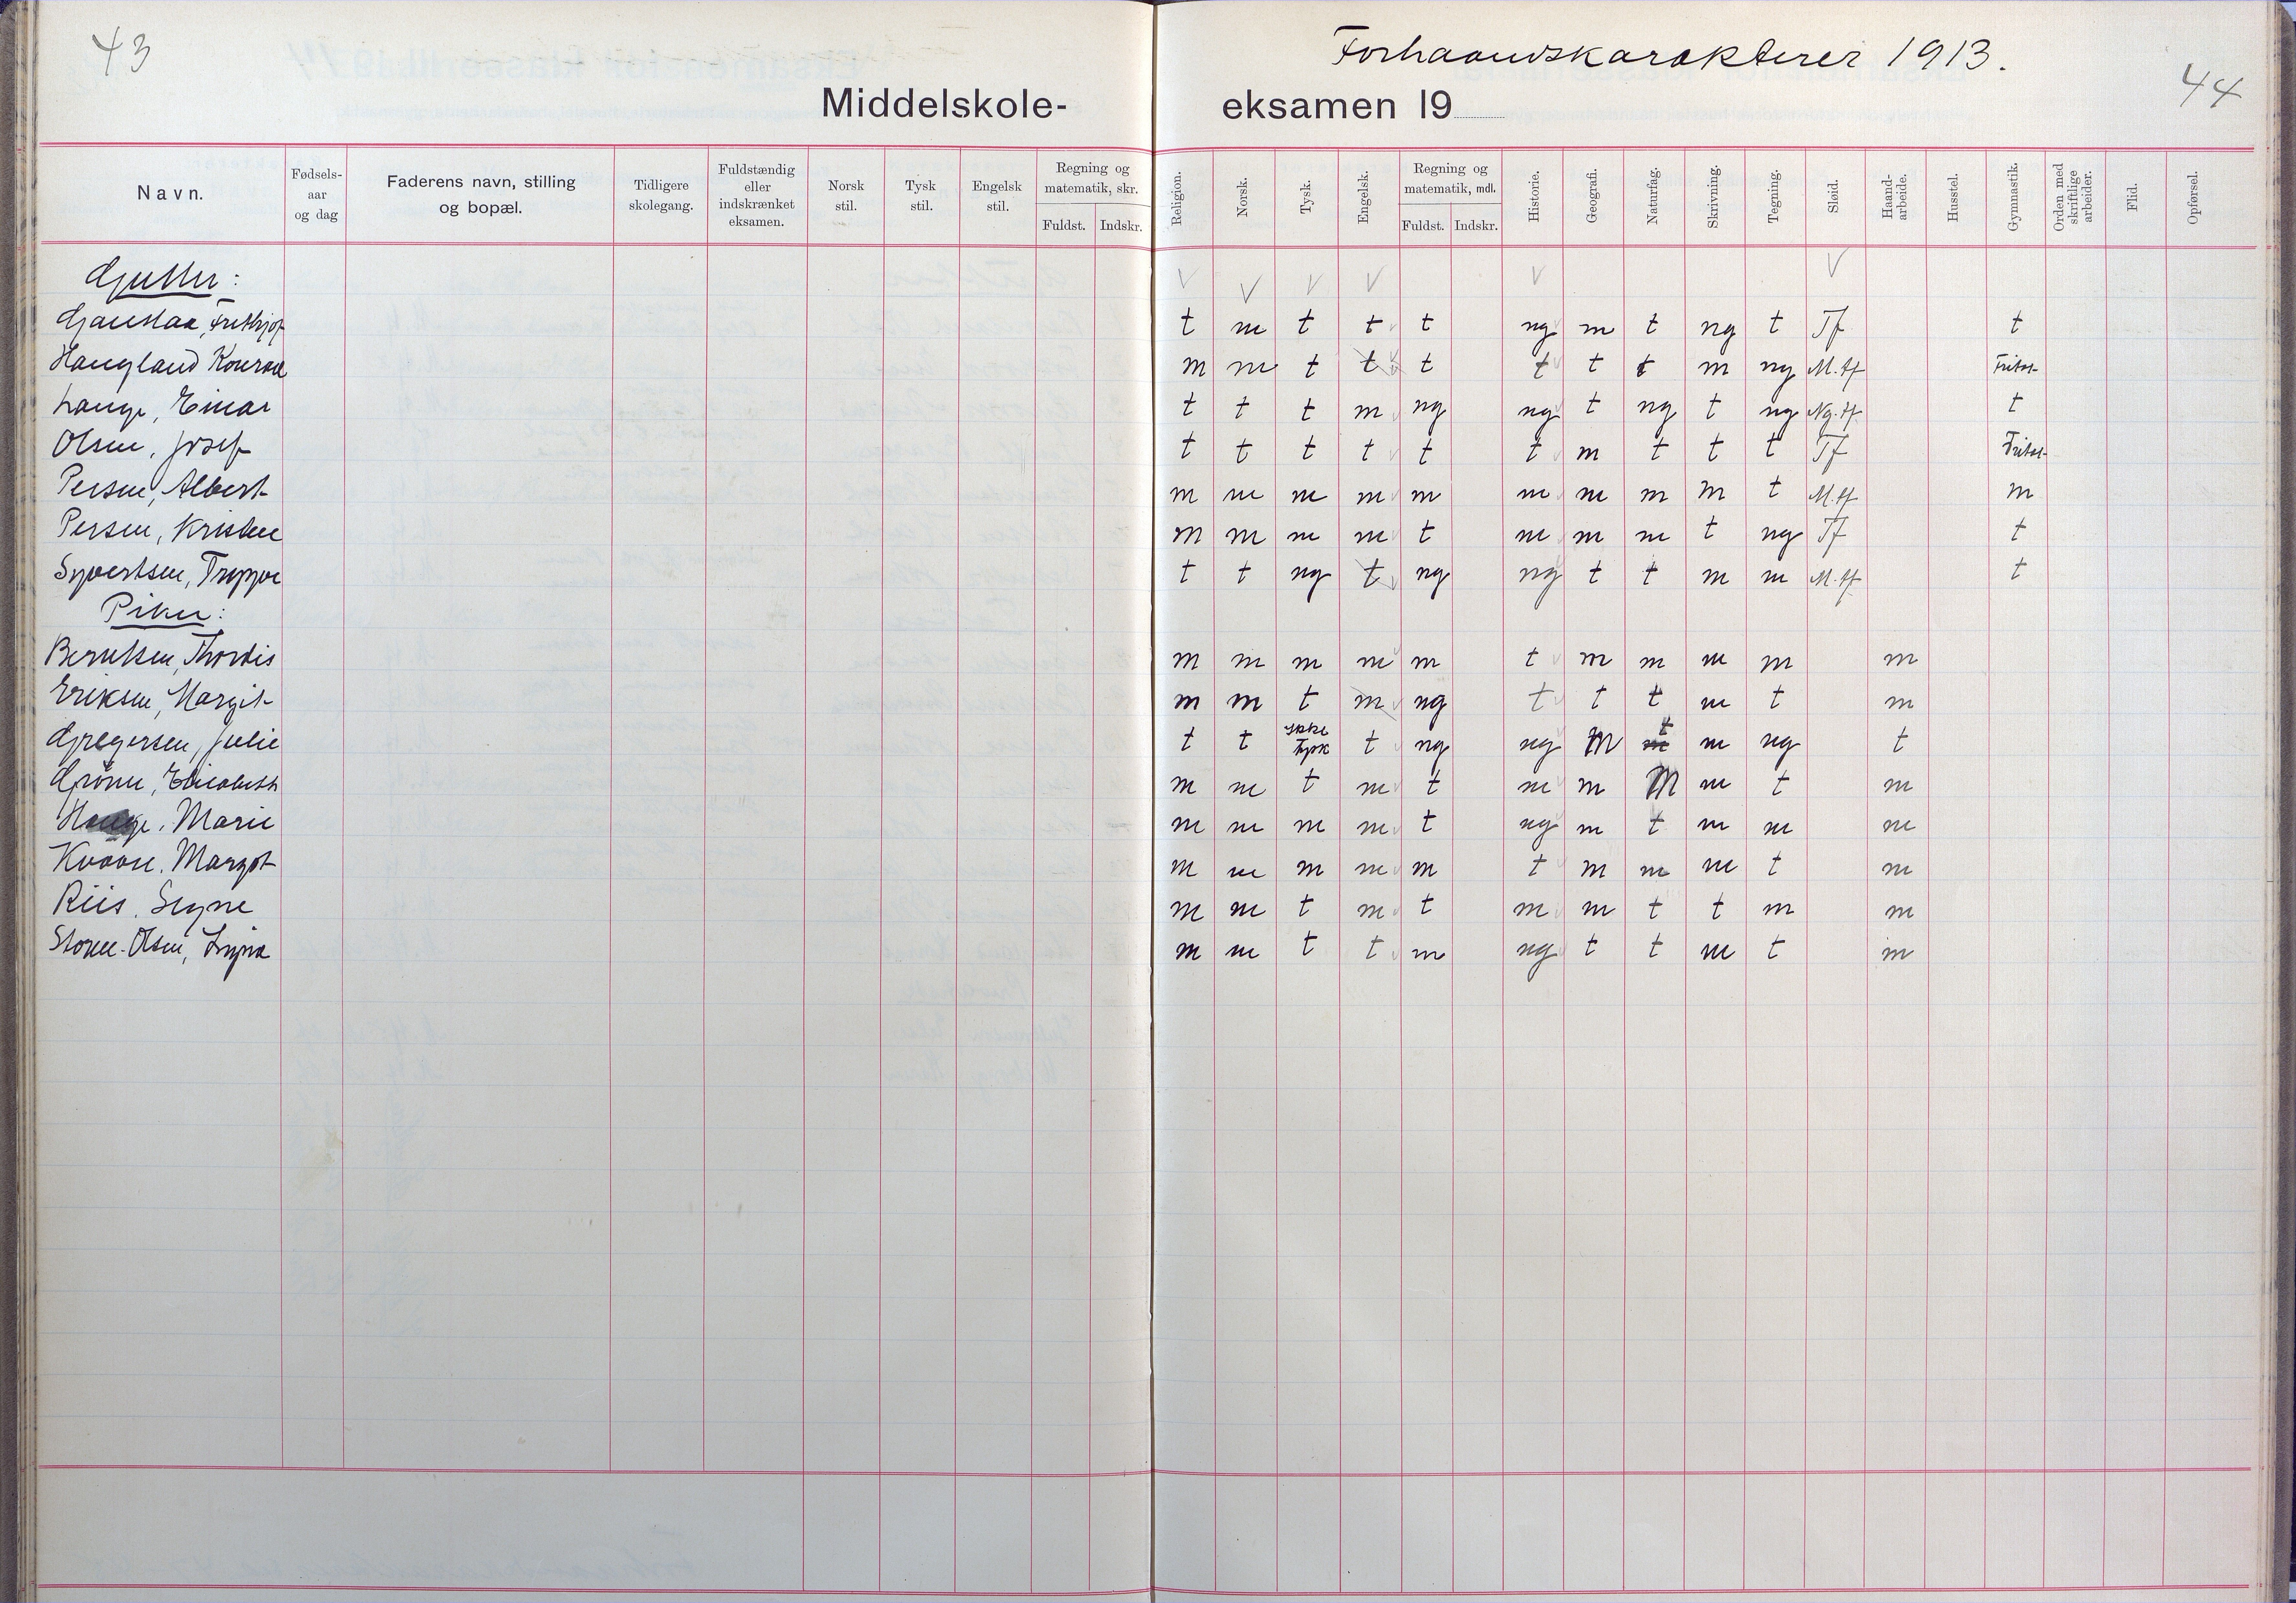 43
Forhaandskarakterer 1913.
44
Middelskole-eksamen 19
Navn. Fødsels-aar og dag Faderens navn, stilling og bopæl. Tidligere skolegang. Fuldstændig eller indskrænket eksamen. Norsk stil. Tysk stil. Engelsk stil. Regning og matematik, skr. Fuldst. Indskr. Religion. Norsk. Tysk. Engelsk. Regning og matematik, mdl. Fuldst. Indskr. Historie. Geografi. Naturfag. Skrivning. Tegning. Sløid. Haand-arbeide. Husstel. Gymnastik. Orden med skriftlige arbeider. Flid. Opførsel.
Gutter: V V V V V V
Gaustaa, Frithjof t m t t t ng m t ng t Tf t
Haugland Konrad m m t t t t t t m ng M.tf Fritat
Lange, Einar t t t m ng ng t ng t ng Ng.tf t
Olsen, Josef t t t t t t m t t t Tf Fritat
Persen, Albert m m m m m m m m m t M.tf m
Persen, Kristen m m m m t m m m t ng Tf t
Syvertsen, Trygve t t ng t ng ng t t m m M.tf t
Piker:
Berntsen, Thordis m m m m m t m m m m m
Eriksen, Margit m m t m ng t t t m t m
Gregersen, Julie t t ikke tysk t ng ng M m t m ng t
Grönn, Elisabeth m m t m t m m M m t m
Marie m m m m t ng m t m m m
Kvaan. Margot m m m m m t m m m t m
Riis. Signe m m t m t m m t t m m
Olsen, m m t t m ng t t m t m